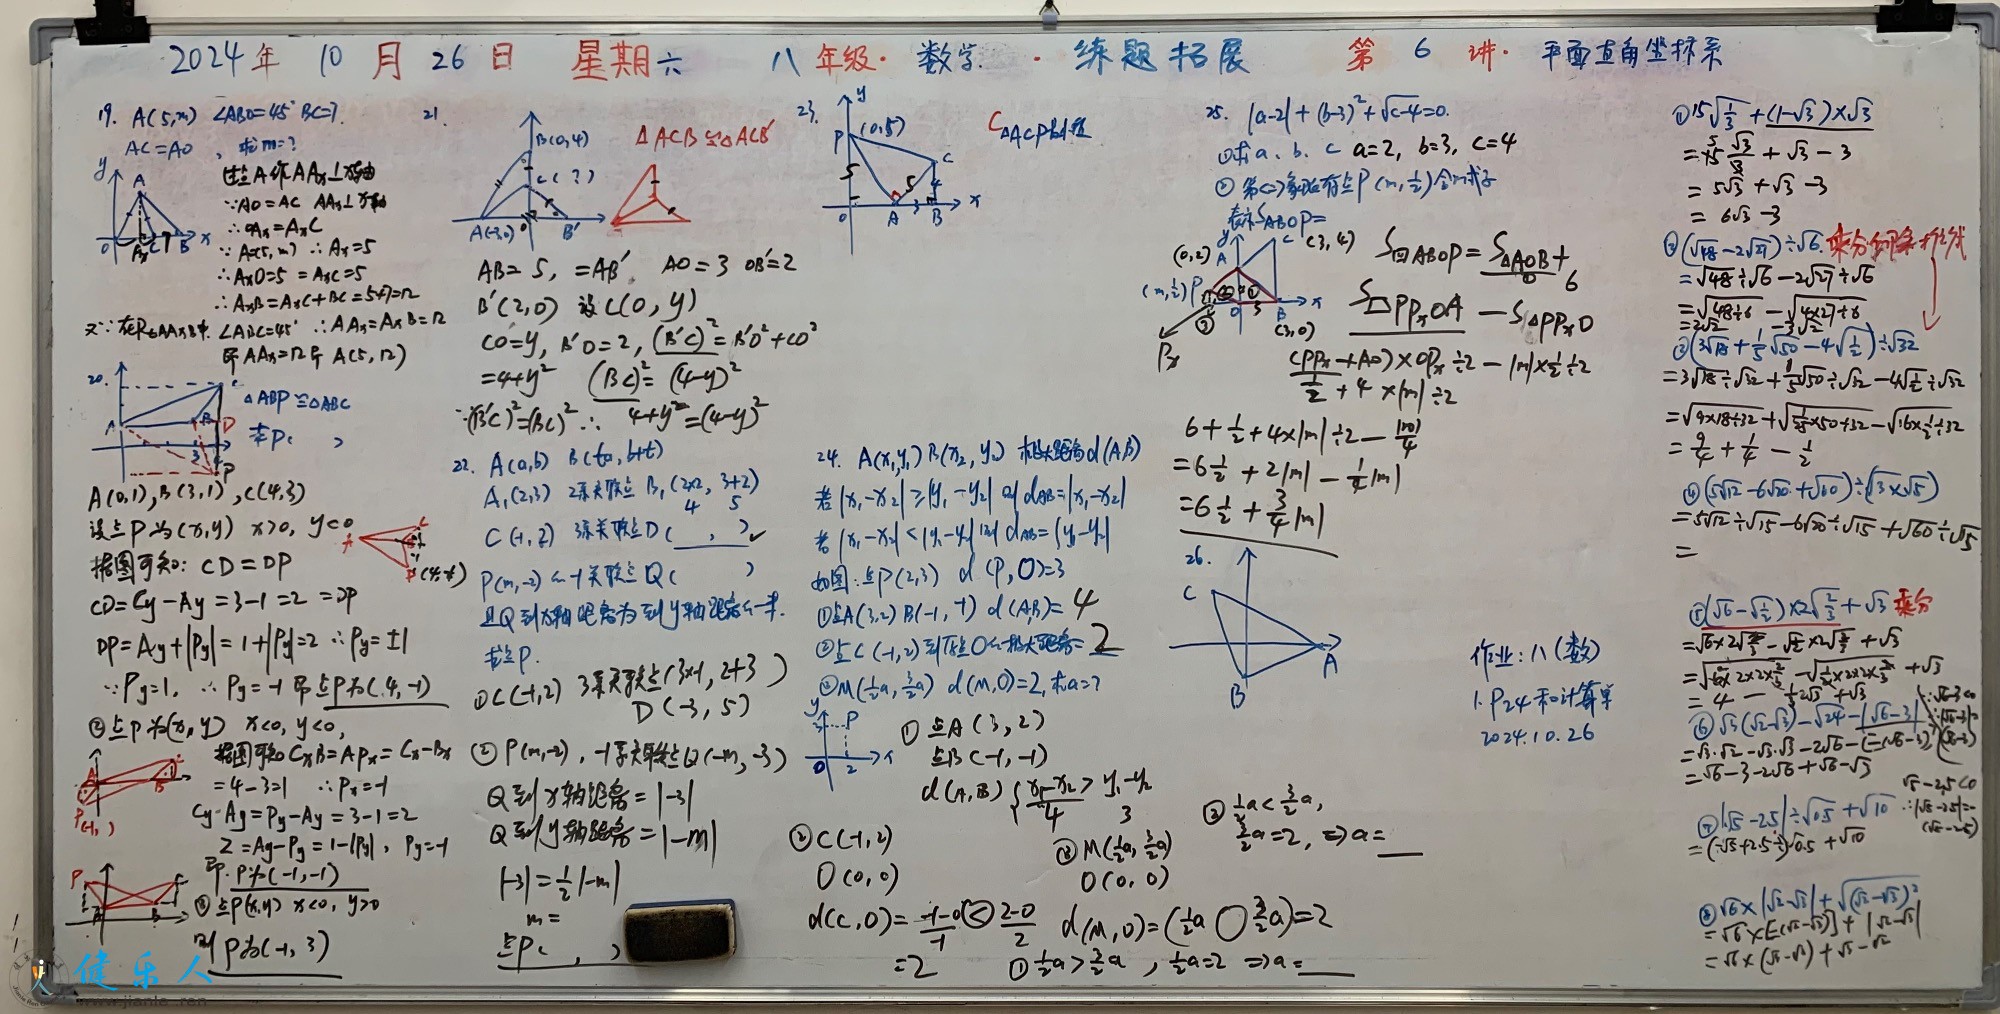 2024年 10月 26日 星期六 八年级·数学·练题拓展 第6讲·平面直角坐标系
19. A(5,m) ∠ABO=45° BC=7.
AC=AO,求m=?
过点A作AAx⊥x轴
∵AO=AC AAx⊥x轴
∴OAx=AxC
∵A(5,m) ∴Ax=5
∴AxO=5=AxC=5
∴AxB=AxC+BC=5+7=12
又∵在Rt△AAxB中 ∠ABC=45° ∴AAx=AxB=12
即AAx=12 即A(5,12)
20.
△ABP≅△ABC
求P( )
A(0,1), B(3,1), C(4,3)
设点P为(x,y) x>0, y<0
据图可知: CD=DP
CD=Cy-Ay=3-1=2=DP
DP=Ay+|Py|=1+|Py|=2 ∴Py=±1
∵Py=1, ∴Py=-1 即点P为(4,-1)
②点P为(x,y) x<0, y<0,
据图可知CxB=APx=Cx-Bx
=4-3=1 ∴Px=-1
Cy-Ay=Py-Ay=3-1=2
2=Ay-Py=1-|Py|, Py=-1
即P为(-1,-1)
③点P(x,y) x<0, y>0
则P为(-1,3)
21.
B(0,4)
C(?)
A(-3,0)
O
B'
△ACB≅△ACB'
AB=5,=AB' AO=3 OB'=2
B'(2,0) 设C(0,y)
CO=y, B'O=2, (B'C)²=B'O²+CO²
=4+y² (BC)²=(4-y)²
∵(B'C)²=(BC)² ∴4+y²=(4-y)²
22. A(a,b) B(ta,b+t)
A₁(2,3) 2系关联点B₁(2×2,3+2)
4 5
C(-1,2) 3系关联点D( , )
P(m,-2)的-1关联点Q( )
且Q到x轴距离为到y轴距离的一半.
求点P.
①C(-1,2) 3系关联点(3×-1,2+3)
D(-3,5)
②P(m,-2),-1系关联点Q(-m,-3)
Q到x轴距离=|-3|
Q到y轴距离=|-m|
|-3|=½|-m|
m=
点P( , )
23.
y
P (0,5)
C
5
5
4
O A 3 B x
C△ACP的周长
24. A(x₁,y₁) B(x₂,y₂) 极大距离d(A,B)
若|x₁-x₂|≥|y₁-y₂| 则dAB=|x₁-x₂|
若|x₁-x₂|<|y₁-y₂| 则dAB=|y₁-y₂|
如图:点P(2,3) d(P,O)=3
①点A(3,2) B(-1,-1) d(A,B)=4
②点C(-1,2)到原点O的极大距离=2
③M(½a,3/2a) d(M,O)=2,求a=?
y
3 P
O 2 x
①点A(3,2)
点B(-1,-1)
d(A,B){x₁-x₂>y₁-y₂
4 3
②C(-1,2)
O(0,0)
d(C,O)=-1-0<2-0
-1 2
=2
③M(½a,3/2a)
O(0,0)
d(M,O)=(½a ○ 3/2a)=2
①½a>3/2a, ½a=2 ⇒a=___
②½a<3/2a,
3/2a=2, ⇒a=___
25. |a-2|+(b-3)²+√c-4=0.
①求a、b、c a=2, b=3, c=4
②第二象限有点P(m,½)
表示SABOP=
(0,2) A
C (3,4)
(m,½) P
B
(3,0)
Px
S四ABOP=S△AOB+
6
S PPxOA-S△PPxO
(PPx+AO)×OPx÷2-|m|×½÷2
½+4×|m|÷2
6+½+4×|m|÷2-|m|/4
=6½+2|m|-¼|m|
=6½+¾|m|
26.
C
A
B
作业:八(数)
1.P24和计算单
2024.10.26
①15√⅓+(1-√3)×√3
=15√3/3+√3-3
=5√3+√3-3
=6√3-3
②(√48-2√27)÷√6 乘分
=√48÷√6-2√27÷√6
=√48÷6-√4×27÷6
=2√2-3√2
③(3√18+1/5√50-4√½)÷√32
=3√18÷√32+1/5√50÷√32-4√½÷√32
=√9×18÷32+√1/25×50÷32-√16×½÷32
=9/4+1/4-1/2
④(5√12-6√20+√60)÷(√3×√5)
=5√12÷√15-6√20÷√15+√60÷√15
=
⑤(√6-√½)×2√⅔+√3 乘分
=√6×2√⅔-√½×2√⅔+√3
=√6×2×2×⅔-√½×2×2×⅔+√3
=4-⅔√3+√3
⑥√3(√2-√3)-√24-|√6-3|
=√3·√2-√3·√3-2√6-[-(√6-3)]
=√6-3-2√6+√6-√3
⑦|√5-2.5|÷√0.5+√10
=(-√5+2.5)÷√0.5+√10
√5-2.5<0
∴|√5-2.5|=-
(√5-2.5)
⑧√6×|√2-√3|+√(√2-√3)²
=√6×[-(√2-√3)]+|√2-√3|
=√6×(√3-√2)+√3-√2
健乐人
www.jianle.ren